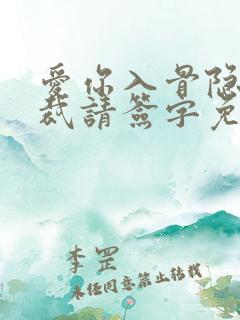 愛你入骨隐
裁請簽字免
李罡
未经同意禁止转载